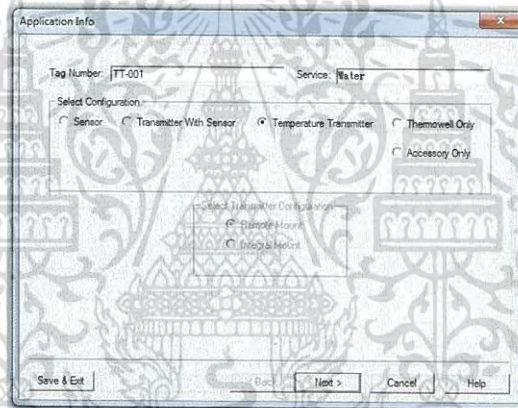 Application Info
Tag Number: TT-001 Service: Water
Select Configuration
Sensor Transmitter With Sensor Temperature Transmitter Thermowell Only
Accessory Only
Select Transmitter Configuration
Remote Mount
Integral Mount
Save & Exit Back Next > Cancel Help